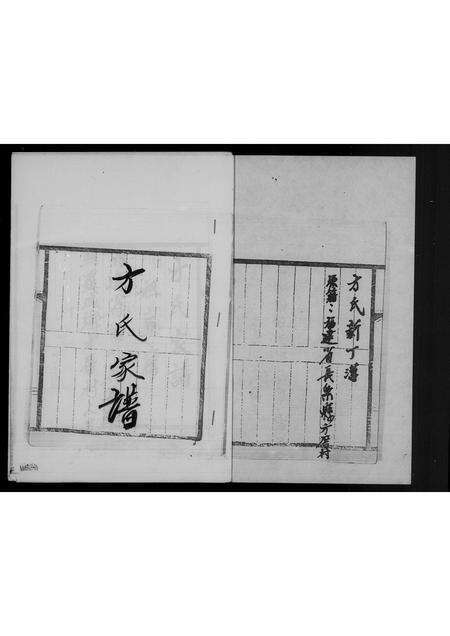 方氏新丁簿
原籍：福建省長樂縣方厝村
方氏家譜